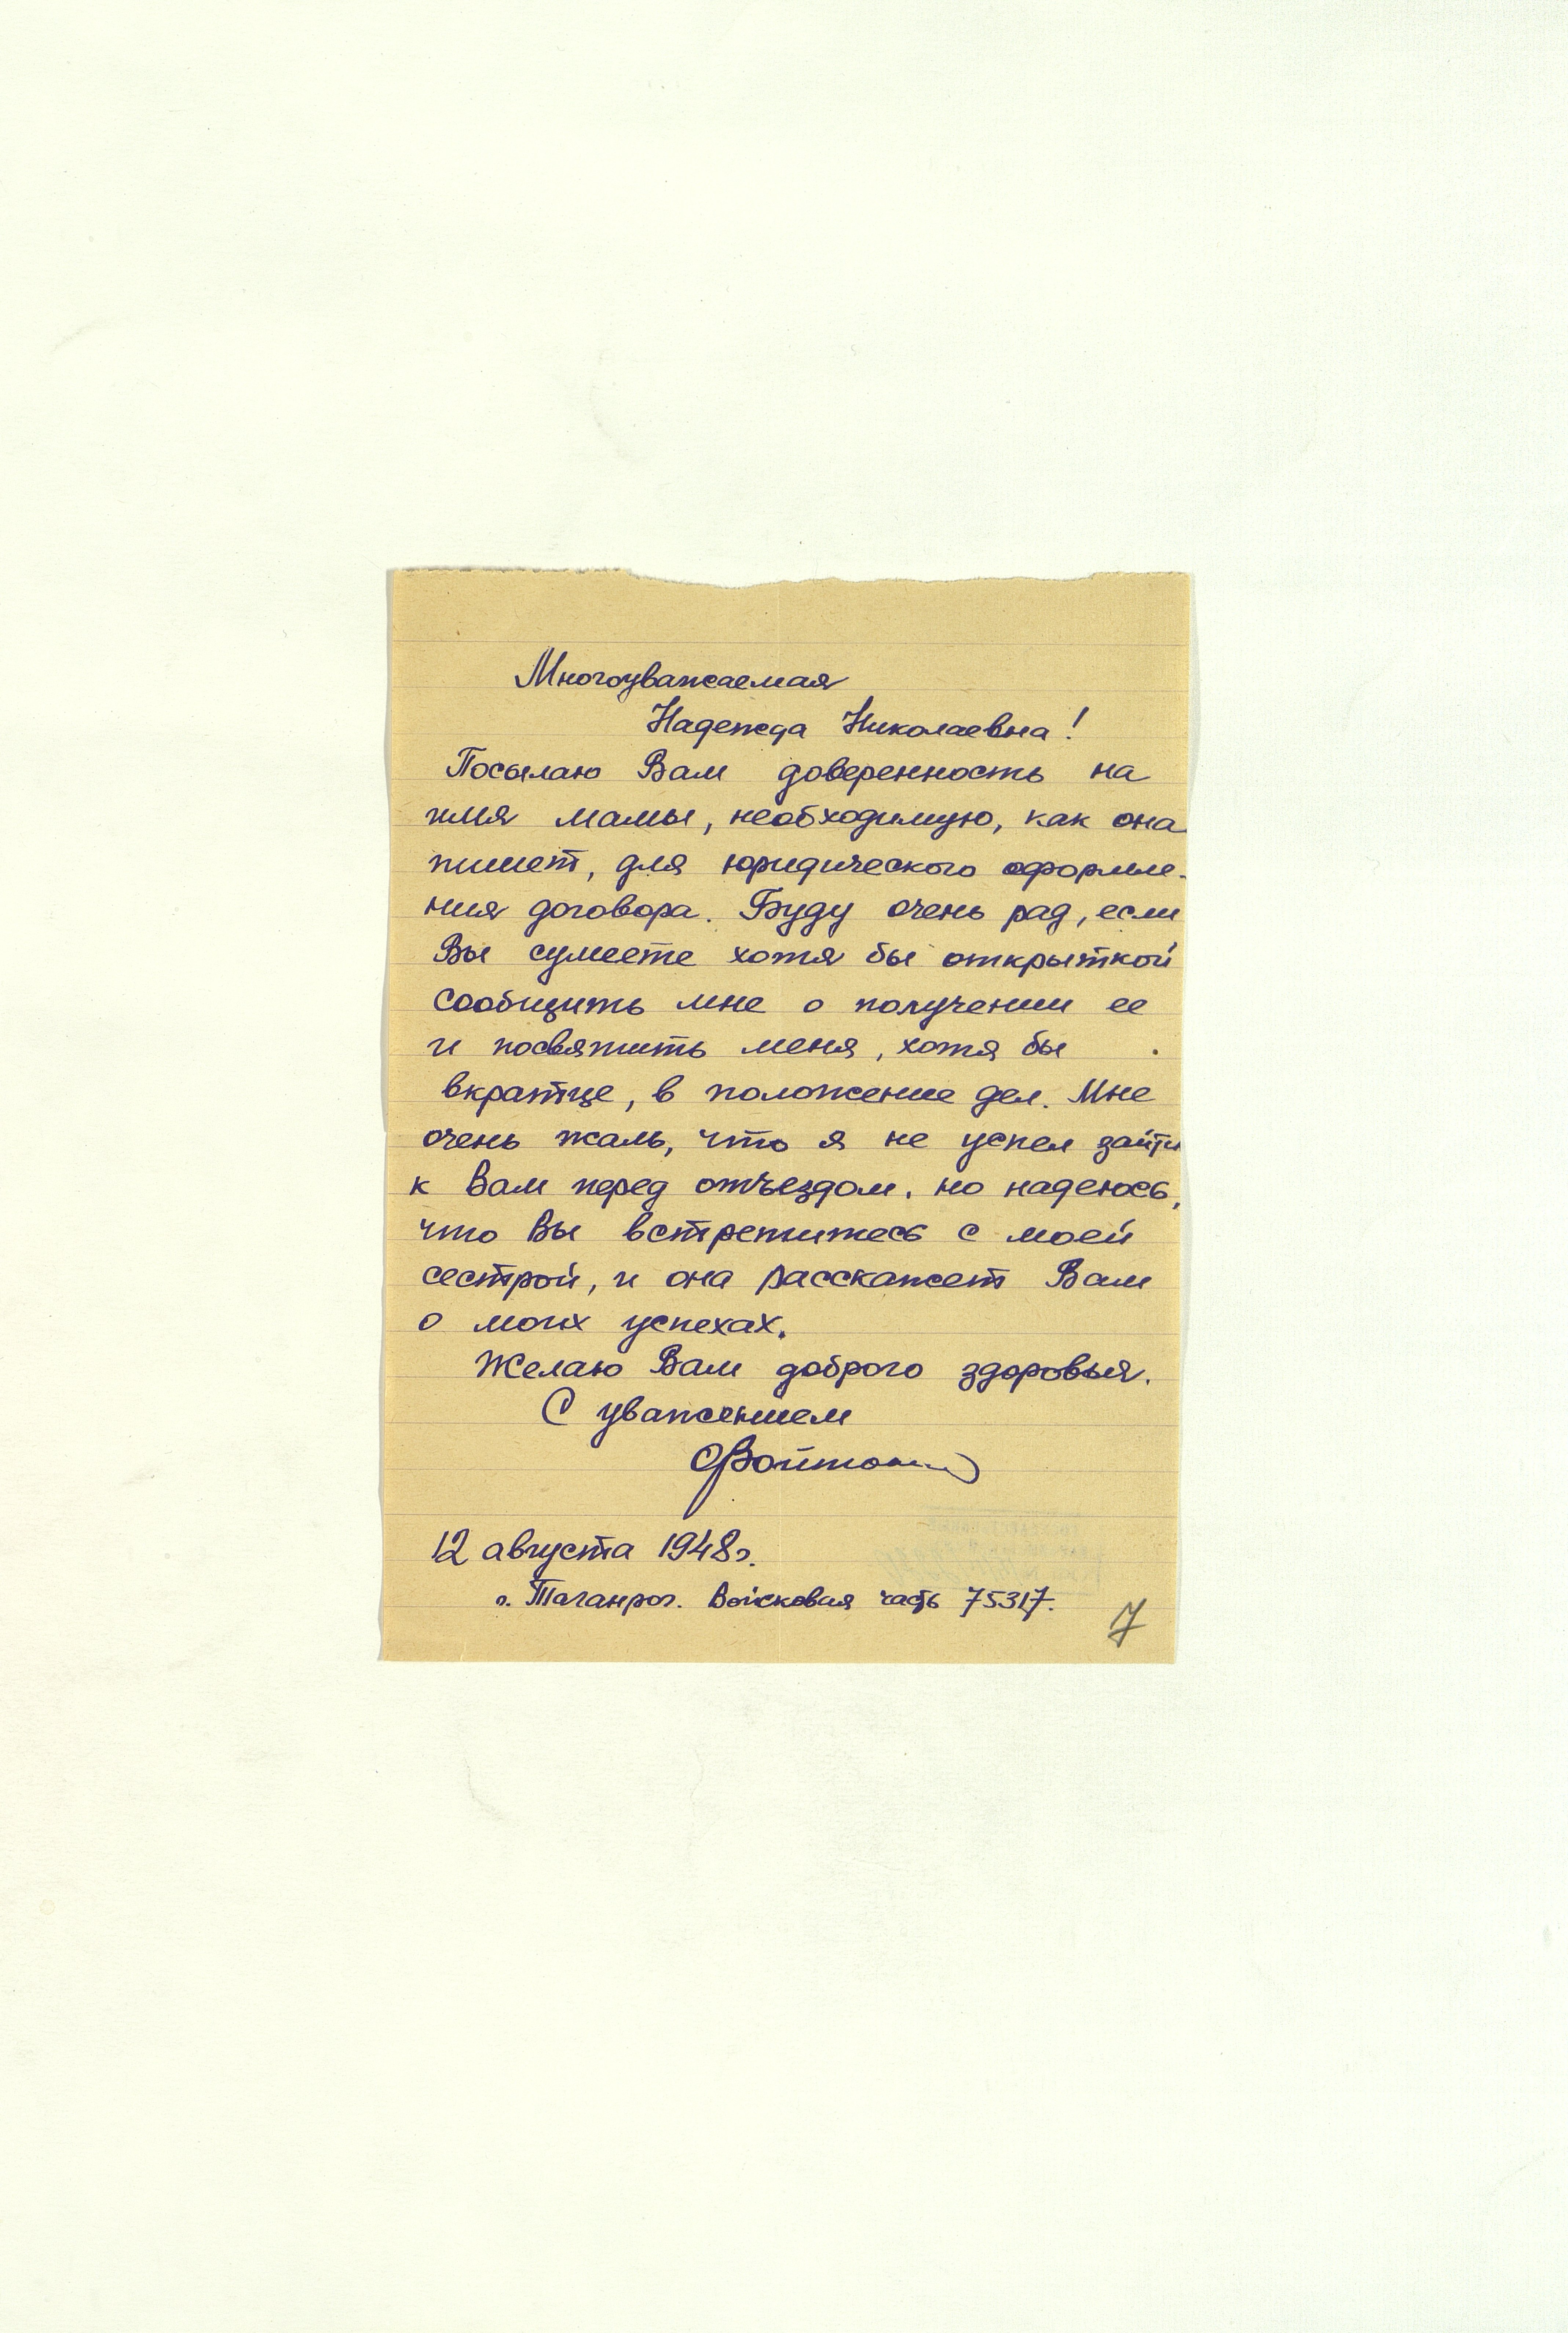 Многоуважаемая
Надежда Николаевна!
Посылаю Вам доверенность на
имя мамы, необходимую, как она
пишет, для юридического оформле-
ния договора. Буду очень рад, если
Вы сумеете хотя бы открыткой
сообщить мне о получении ее
и посвятить меня, хотя бы
вкратце, в положение дел. Мне
очень жаль, что я не успел зайти
к Вам перед отъездом, но надеюсь,
что Вы встретитесь с моей
сестрой, и она расскажет Вам
о моих успехах.
Желаю Вам доброго здоровья.
С уважением
12 августа 1948г.
г. Таганрог. Войсковая часть 75317.
7